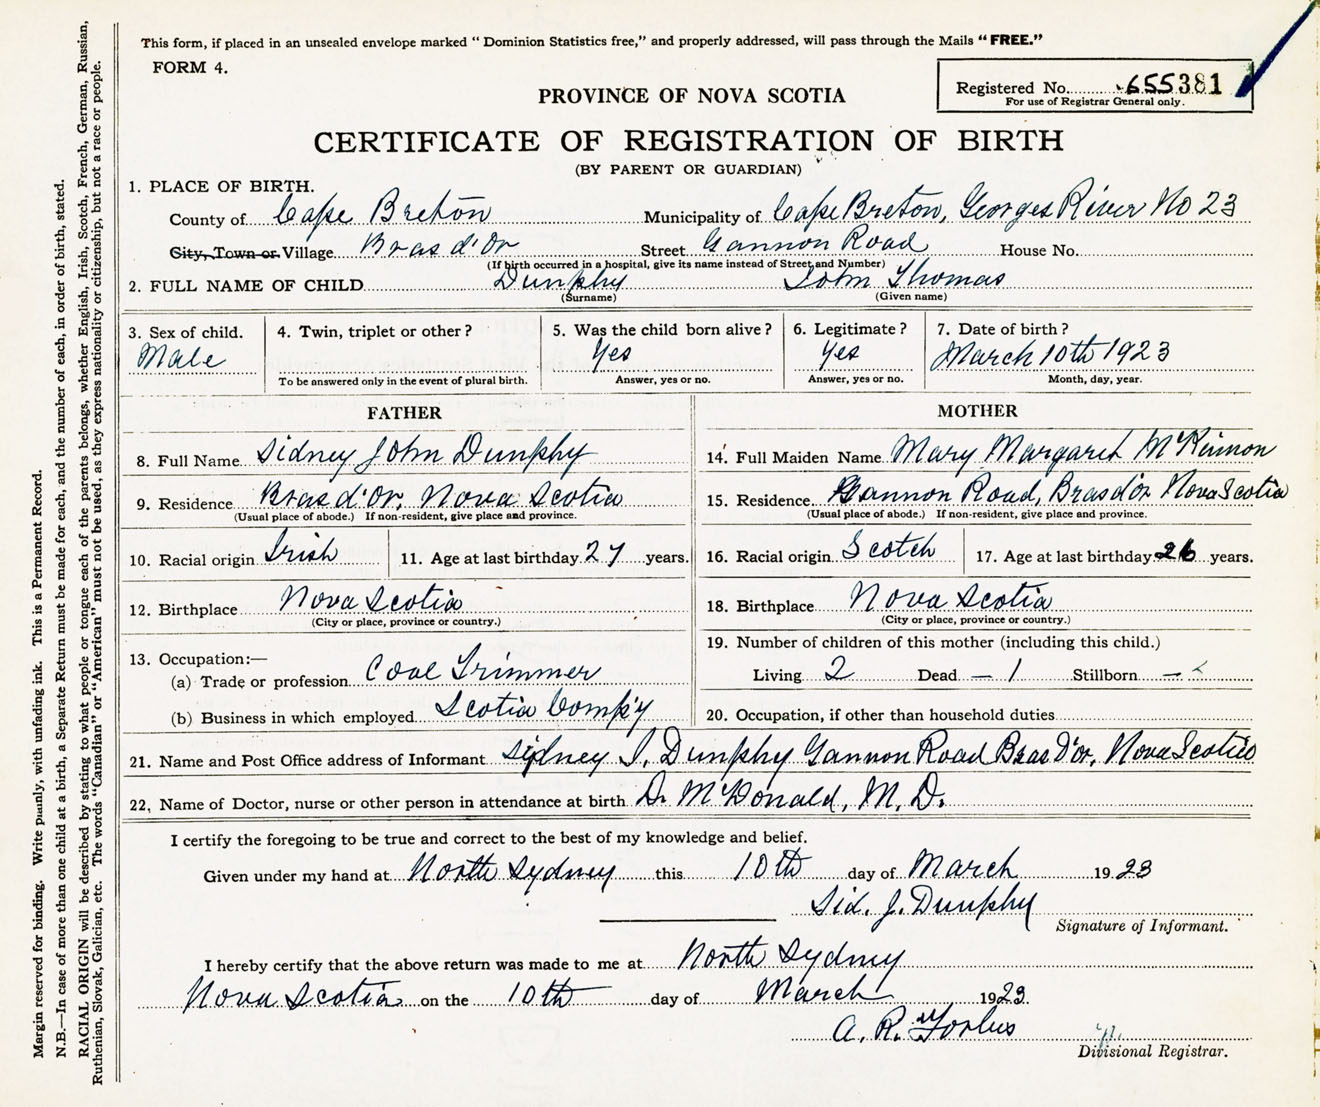 This form, if placed in an unsealed envelope marked "Dominion Statistics free," and properly addressed, will pass through the Mails "FREE."
FORM 4.
Registered No. 655381
For use of Registrar General only.
PROVINCE OF NOVA SCOTIA
CERTIFICATE OF REGISTRATION OF BIRTH
(BY PARENT OR GUARDIAN)
1. PLACE OF BIRTH.
County of Cape Breton Municipality of Cape Breton, Georges River No 23
City, Town or Village Bras d'Or Street Gannon Road House No.
(If birth occurred in a hospital, give its name instead of Street and Number)
2. FULL NAME OF CHILD Dunphy John Thomas
(Surname) (Given name)
3. Sex of child. 4. Twin, triplet or other? 5. Was the child born alive? 6. Legitimate? 7. Date of birth?
Male Yes Yes March 10th 1923
To be answered only in the event of plural birth. Answer, yes or no. Answer, yes or no. Month, day, year.
FATHER MOTHER
8. Full Name Sidney John Dunphy 14. Full Maiden Name Mary Margaret McKinnon
9. Residence Bras d'Or, Nova Scotia 15. Residence Gannon Road, Bras d'Or Nova Scotia
(Usual place of abode.) If non-resident, give place and province. (Usual place of abode.) If non-resident, give place and province.
10. Racial origin Irish 11. Age at last birthday 27 years. 16. Racial origin Scotch 17. Age at last birthday 26 years.
12. Birthplace Nova Scotia 18. Birthplace Nova Scotia
(City or place, province or country.) (City or place, province or country.)
13. Occupation:— 19. Number of children of this mother (including this child.)
(a) Trade or profession Coal Trimmer Living 2 Dead — 1 Stillborn —
(b) Business in which employed Scotia Comp'y 20. Occupation, if other than household duties
21. Name and Post Office address of Informant Sidney J. Dunphy Gannon Road Bras D'or, Nova Scotia
22. Name of Doctor, nurse or other person in attendance at birth Dr McDonald, M.D.
I certify the foregoing to be true and correct to the best of my knowledge and belief.
Given under my hand at North Sydney this 10th day of March 1923
Sid. J. Dunphy
Signature of Informant.
I hereby certify that the above return was made to me at North Sydney
Nova Scotia on the 10th day of March 1923.
A. R. Forbes
Divisional Registrar.
Margin reserved for binding. Write plainly, with unfading ink. This is a Permanent Record.
N.B.—In case of more than one child at a birth, a Separate Return must be made for each, and the number of each, in order of birth, stated.
RACIAL ORIGIN will be described by stating to what people or tongue each of the parents belongs, whether English, Irish, Scotch, French, German, Russian,
Ruthenian, Slovak, Galician, etc. The words "Canadian" or "American" must not be used, as they express nationality or citizenship, but not a race or people.